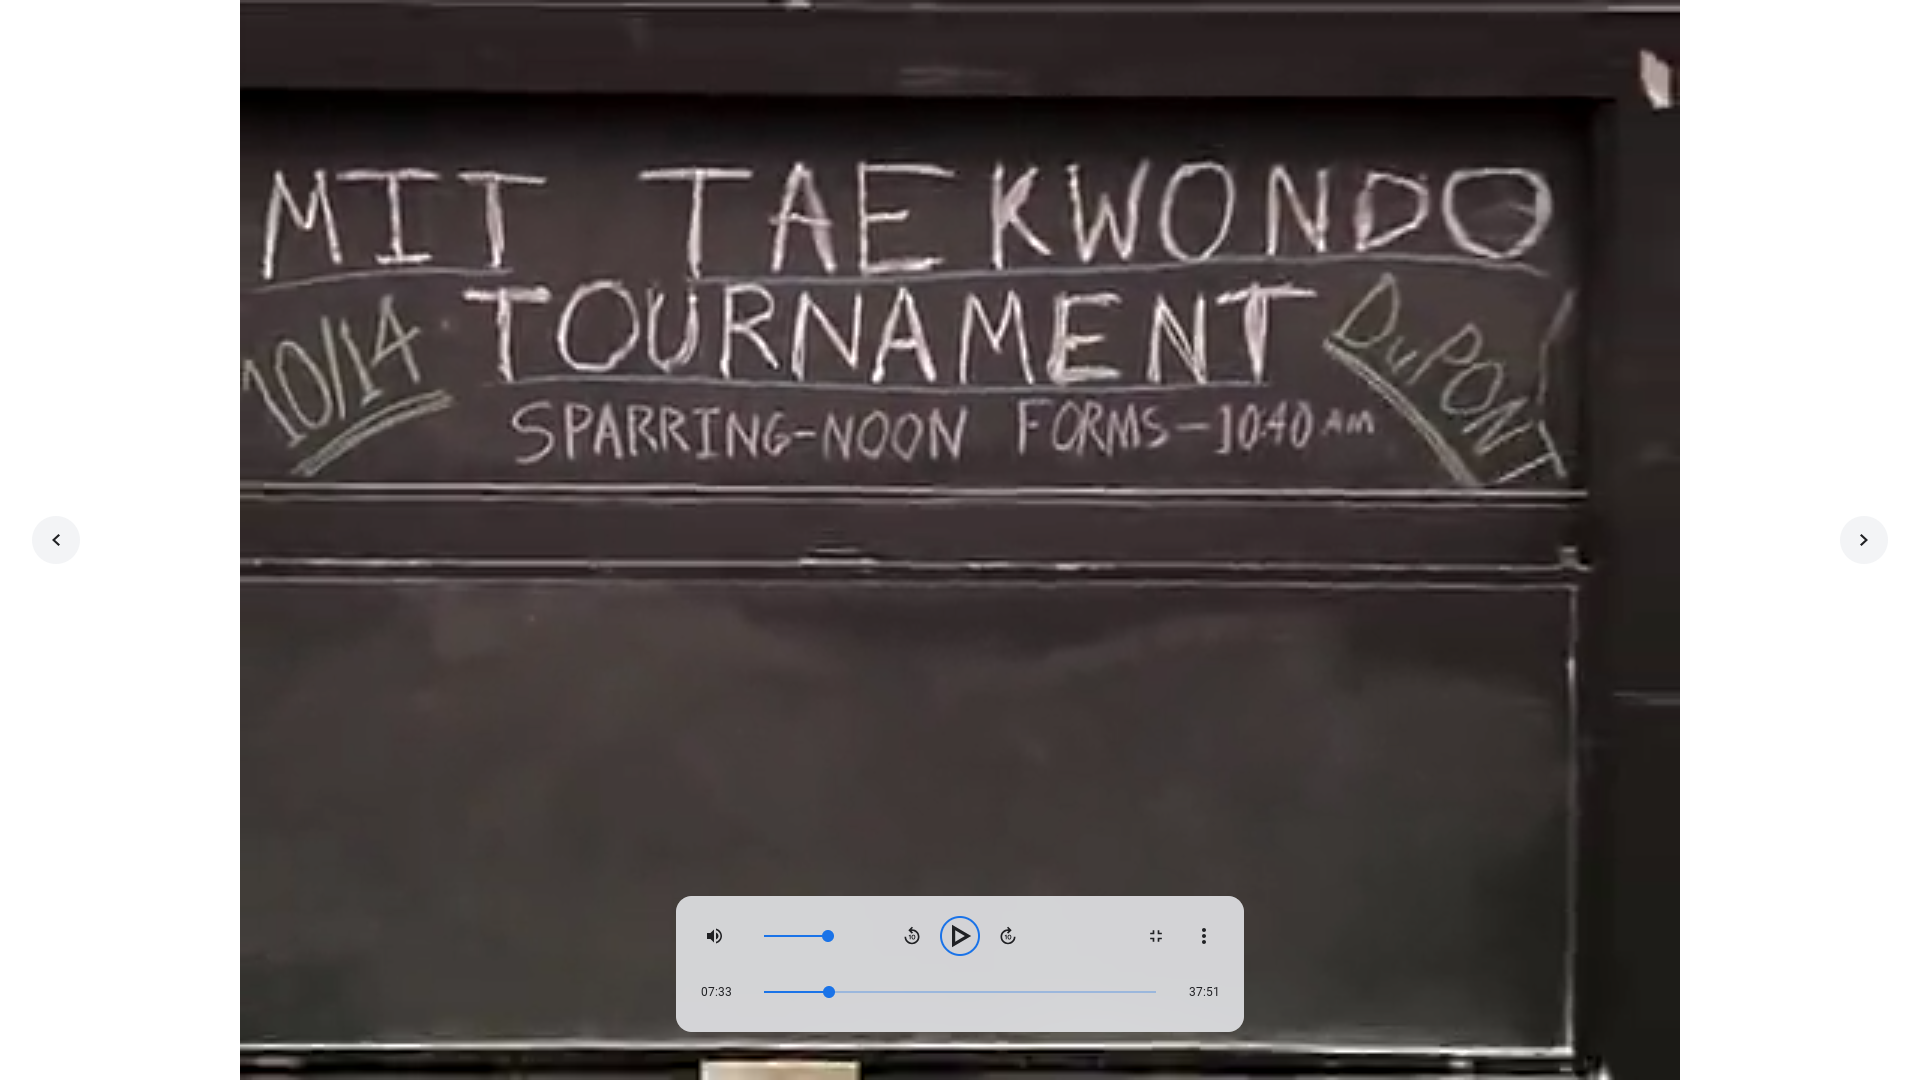 MIT TAEKWONDO
10/14
TOURNAMENT
DuPONT
SPARRING-NOON FORMS-10:40 AM
07:33
37:51